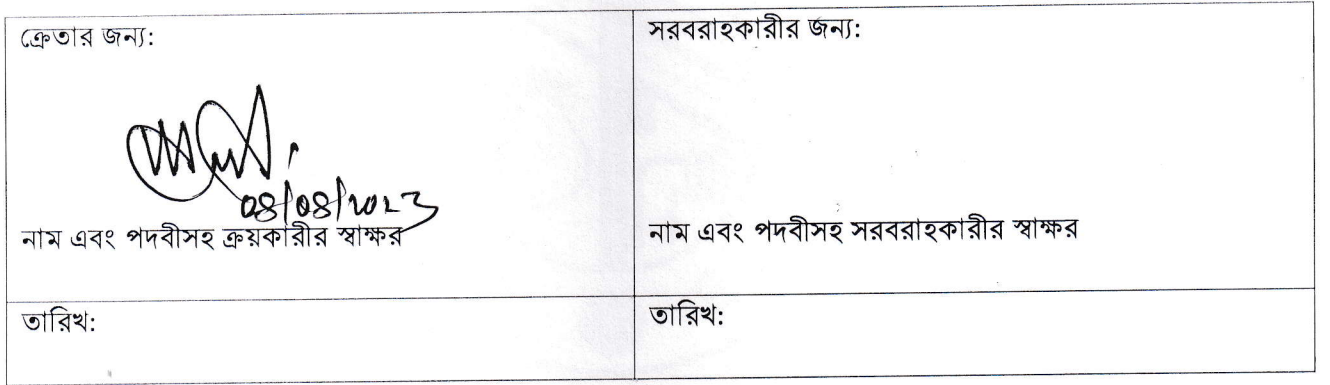 ক্রেতার জন্য:
08/08/2023
নাম এবং পদবীসহ ক্রয়কারীর স্বাক্ষর
তারিখ:
সরবরাহকারীর জন্য:
নাম এবং পদবীসহ সরবরাহকারীর স্বাক্ষর
তারিখ: